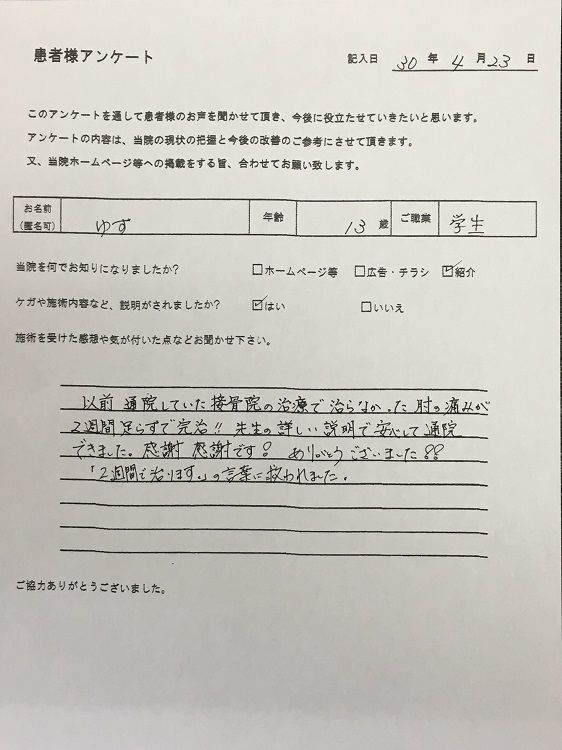 患者様アンケート
記入日 30 年 4 月 23 日
このアンケートを通して患者様のお声を聞かせて頂き、今後に役立たせていきたいと思います。
アンケートの内容は、当院の現状の把握と今後の改善のご参考にさせて頂きます。
又、当院ホームページ等への掲載をする旨、合わせてお願い致します。
お名前
(匿名可) ゆず 年齢 13 歳 ご職業 学生
当院を何でお知りになりましたか? □ホームページ等 □広告・チラシ ☑紹介
ケガや施術内容など、説明がされましたか? ☑はい □いいえ
施術を受けた感想や気が付いた点などお聞かせ下さい。
以前 通院していた接骨院の治療で治らなかった肘の痛みが
2週間足らずで完治!! 先生の詳しい説明で安心して通院
できました。感謝 感謝です! ありがとうございました!!
「2週間で治ります。」の言葉に救われました。
ご協力ありがとうございました。